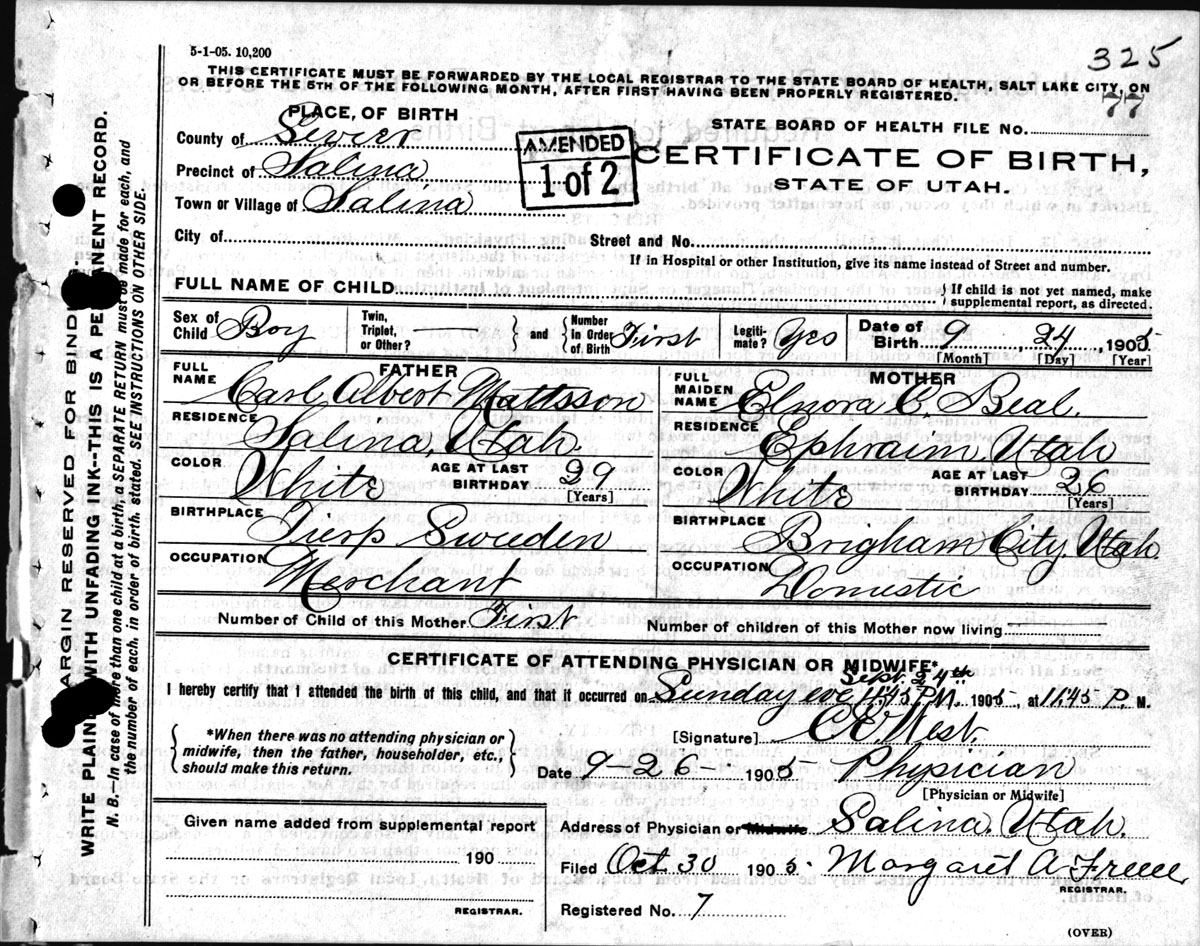 5-1-05. 10,200
325
THIS CERTIFICATE MUST BE FORWARDED BY THE LOCAL REGISTRAR TO THE STATE BOARD OF HEALTH, SALT LAKE CITY, ON
OR BEFORE THE 5TH OF THE FOLLOWING MONTH, AFTER FIRST HAVING BEEN PROPERLY REGISTERED.
77
PLACE, OF BIRTH
STATE BOARD OF HEALTH FILE No.
County of Sevier
AMENDED
1 of 2
CERTIFICATE OF BIRTH,
Precinct of Salina
STATE OF UTAH.
Town or Village of Salina
City of
Street and No.
If in Hospital or other Institution, give its name instead of Street and number.
FULL NAME OF CHILD
If child is not yet named, make
supplemental report, as directed.
Sex of Child Boy
Twin, Triplet, or Other? —
and
Number in Order of Birth First
Legiti-mate? Yes
Date of Birth 9, 24, 1905
[Month] [Day] [Year]
FATHER
FULL NAME Carl Albert Mattsson
RESIDENCE Salina, Utah.
COLOR White AGE AT LAST BIRTHDAY 29
[Years]
BIRTHPLACE Tierp Sweden
OCCUPATION Merchant
MOTHER
FULL MAIDEN NAME Elnora C. Beal.
RESIDENCE Ephraim, Utah
COLOR White AGE AT LAST BIRTHDAY 26
[Years]
BIRTHPLACE Brigham City, Utah
OCCUPATION Domestic
Number of Child of this Mother First
Number of children of this Mother now living
CERTIFICATE OF ATTENDING PHYSICIAN OR MIDWIFE*
Sept. 24th
I hereby certify that I attended the birth of this child, and that it occurred on Sunday eve 11,45 P.M. 1905, at 11,45 P. M.
*When there was no attending physician or
midwife, then the father, householder, etc.,
should make this return.
[Signature] West.
Date 9-26- 1905 Physician
[Physician or Midwife]
Given name added from supplemental report
190
REGISTRAR.
Address of Physician or Midwife Salina. Utah.
Filed Oct. 30 1905. Margaret A.
REGISTRAR.
Registered No. 7
(OVER)
MARGIN RESERVED FOR BINDING
WRITE PLAINLY WITH UNFADING INK--THIS IS A PERMANENT RECORD.
N. B.—In case of more than one child at a birth, a SEPARATE RETURN must be made for each, and
the number of each, in order of birth, stated. SEE INSTRUCTIONS ON OTHER SIDE.